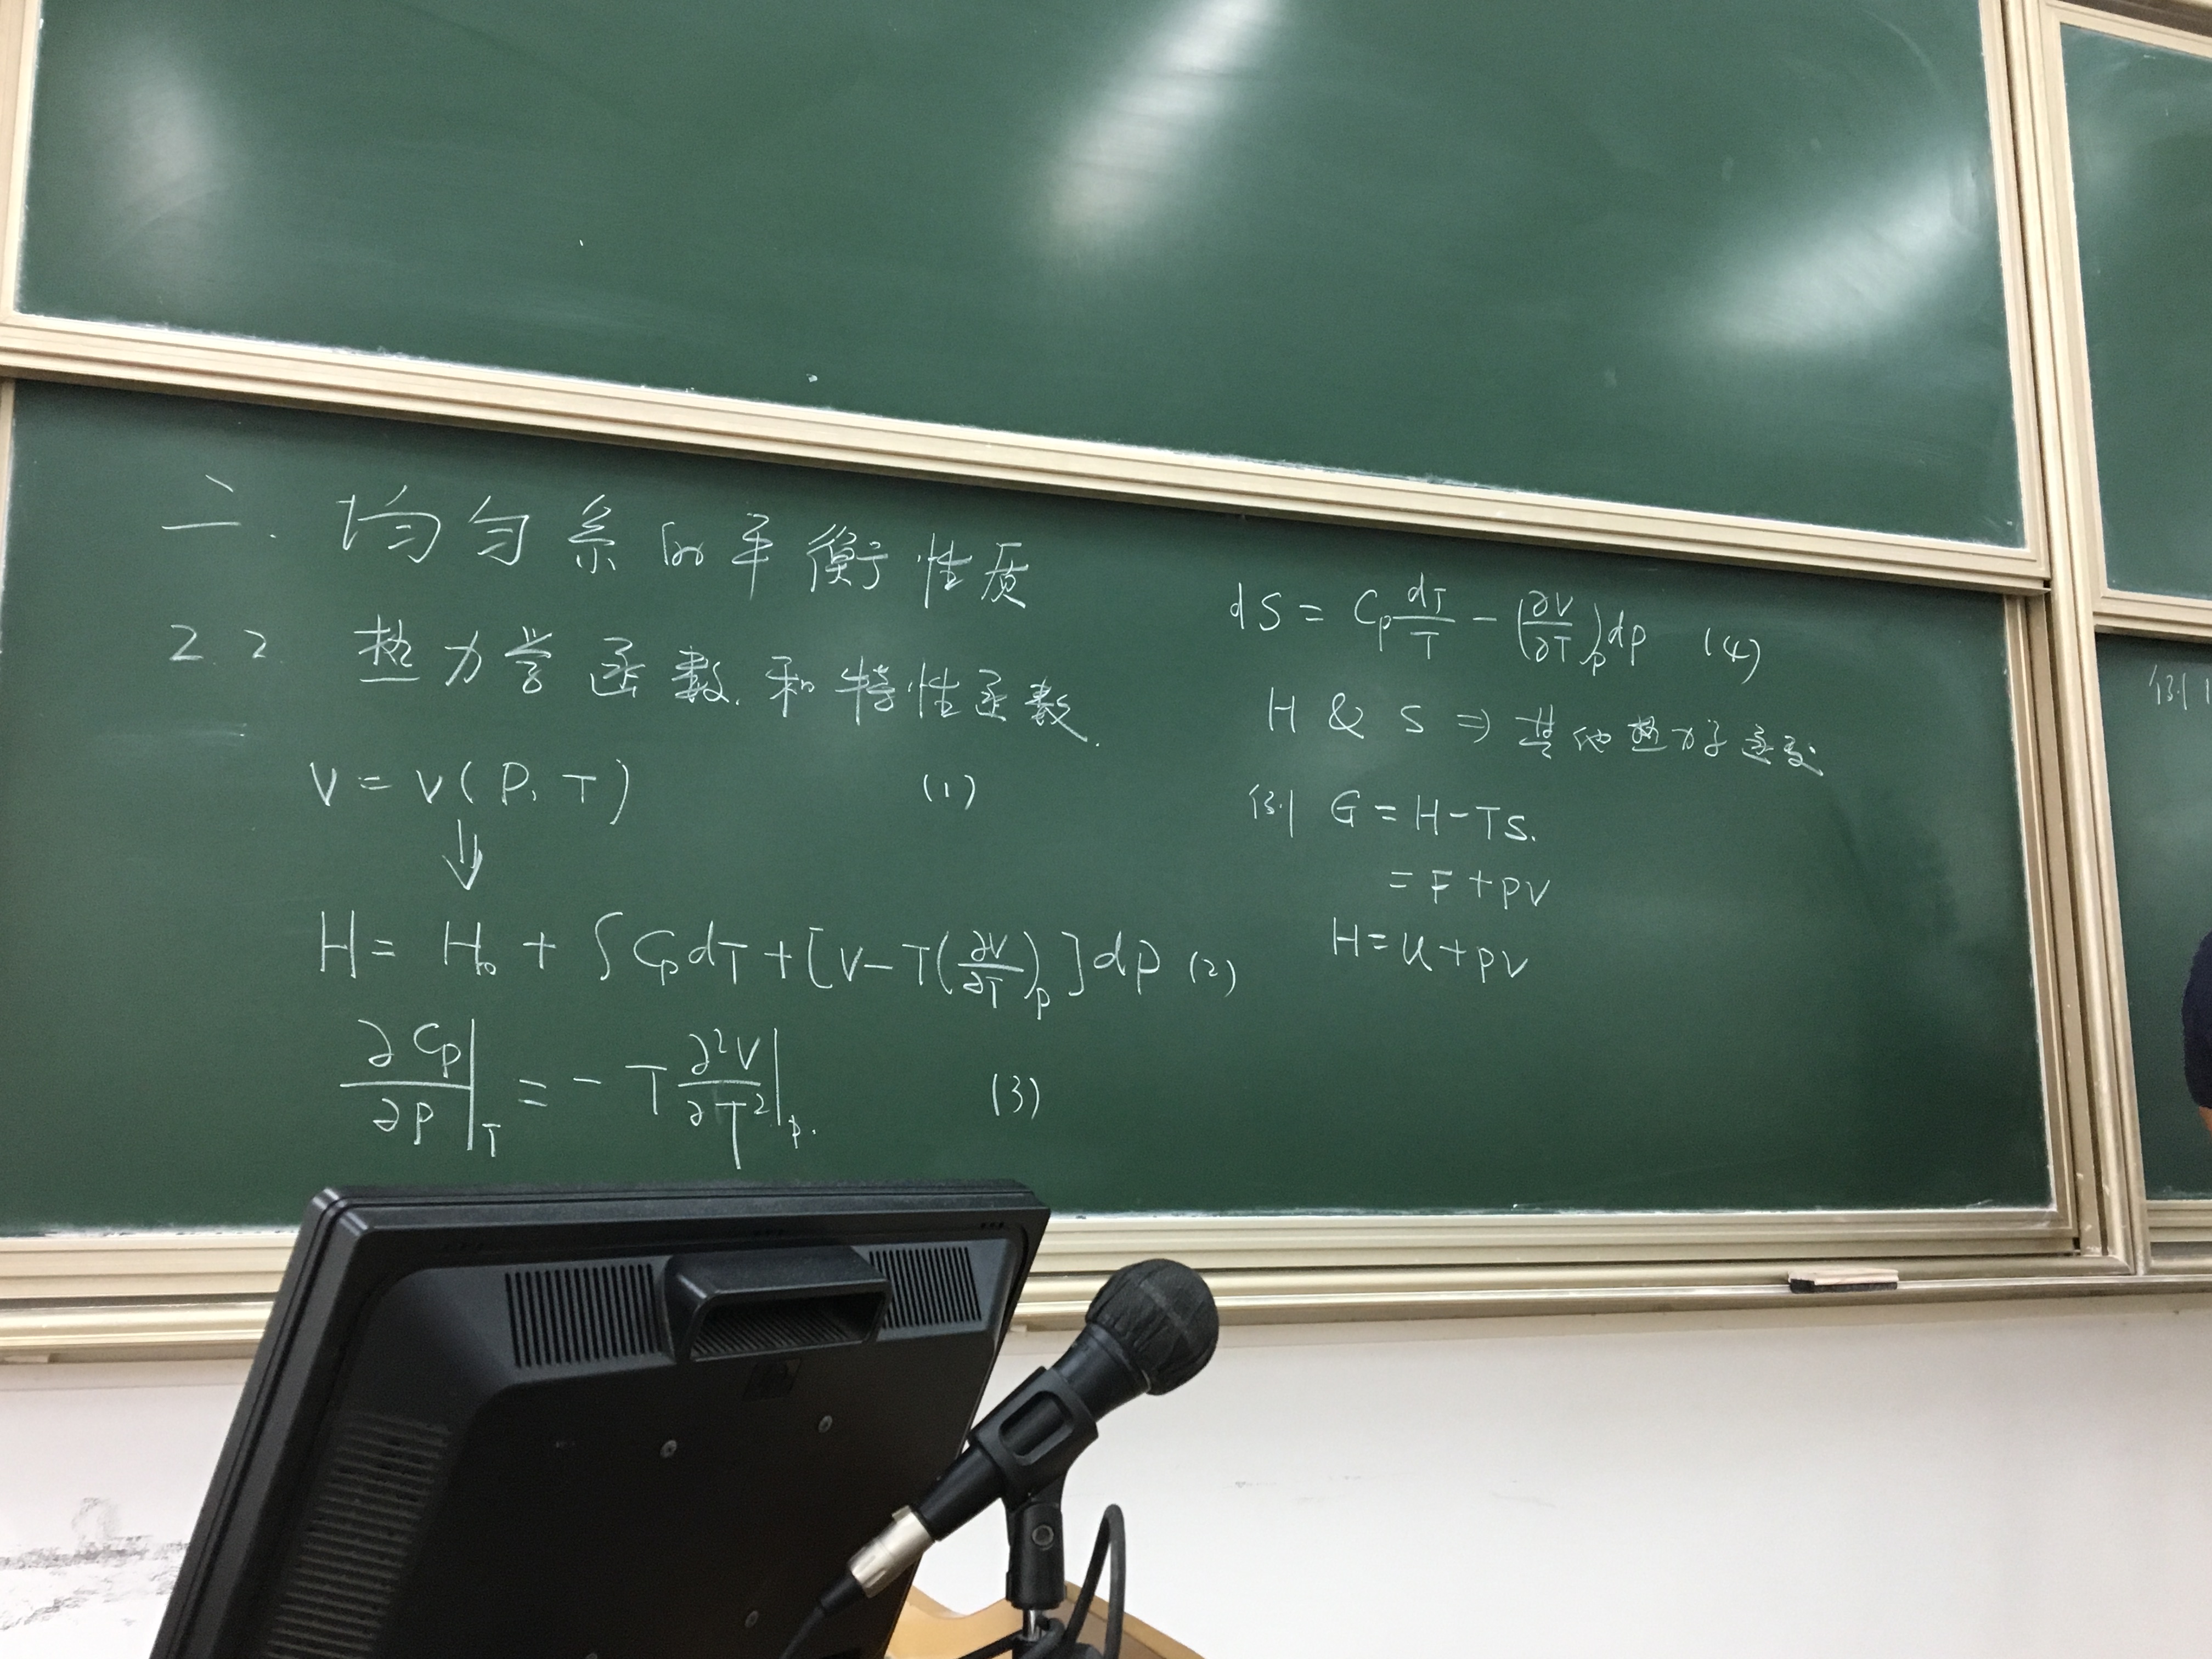 二. 均匀系的平衡性质
2.2 热力学函数和特性函数.
V = V(P, T) (1)
⇓
H = H₀ + ∫ Cp dT + [V − T(∂V/∂T)p] dp (2)
∂Cp/∂P|T = − T ∂²V/∂T²|p. (3)
dS = Cp dT/T − (∂V/∂T)p dp (4)
H & S ⇒ 其他热力学函数
例 G = H − TS.
= F + pV
H = U + pV
例1